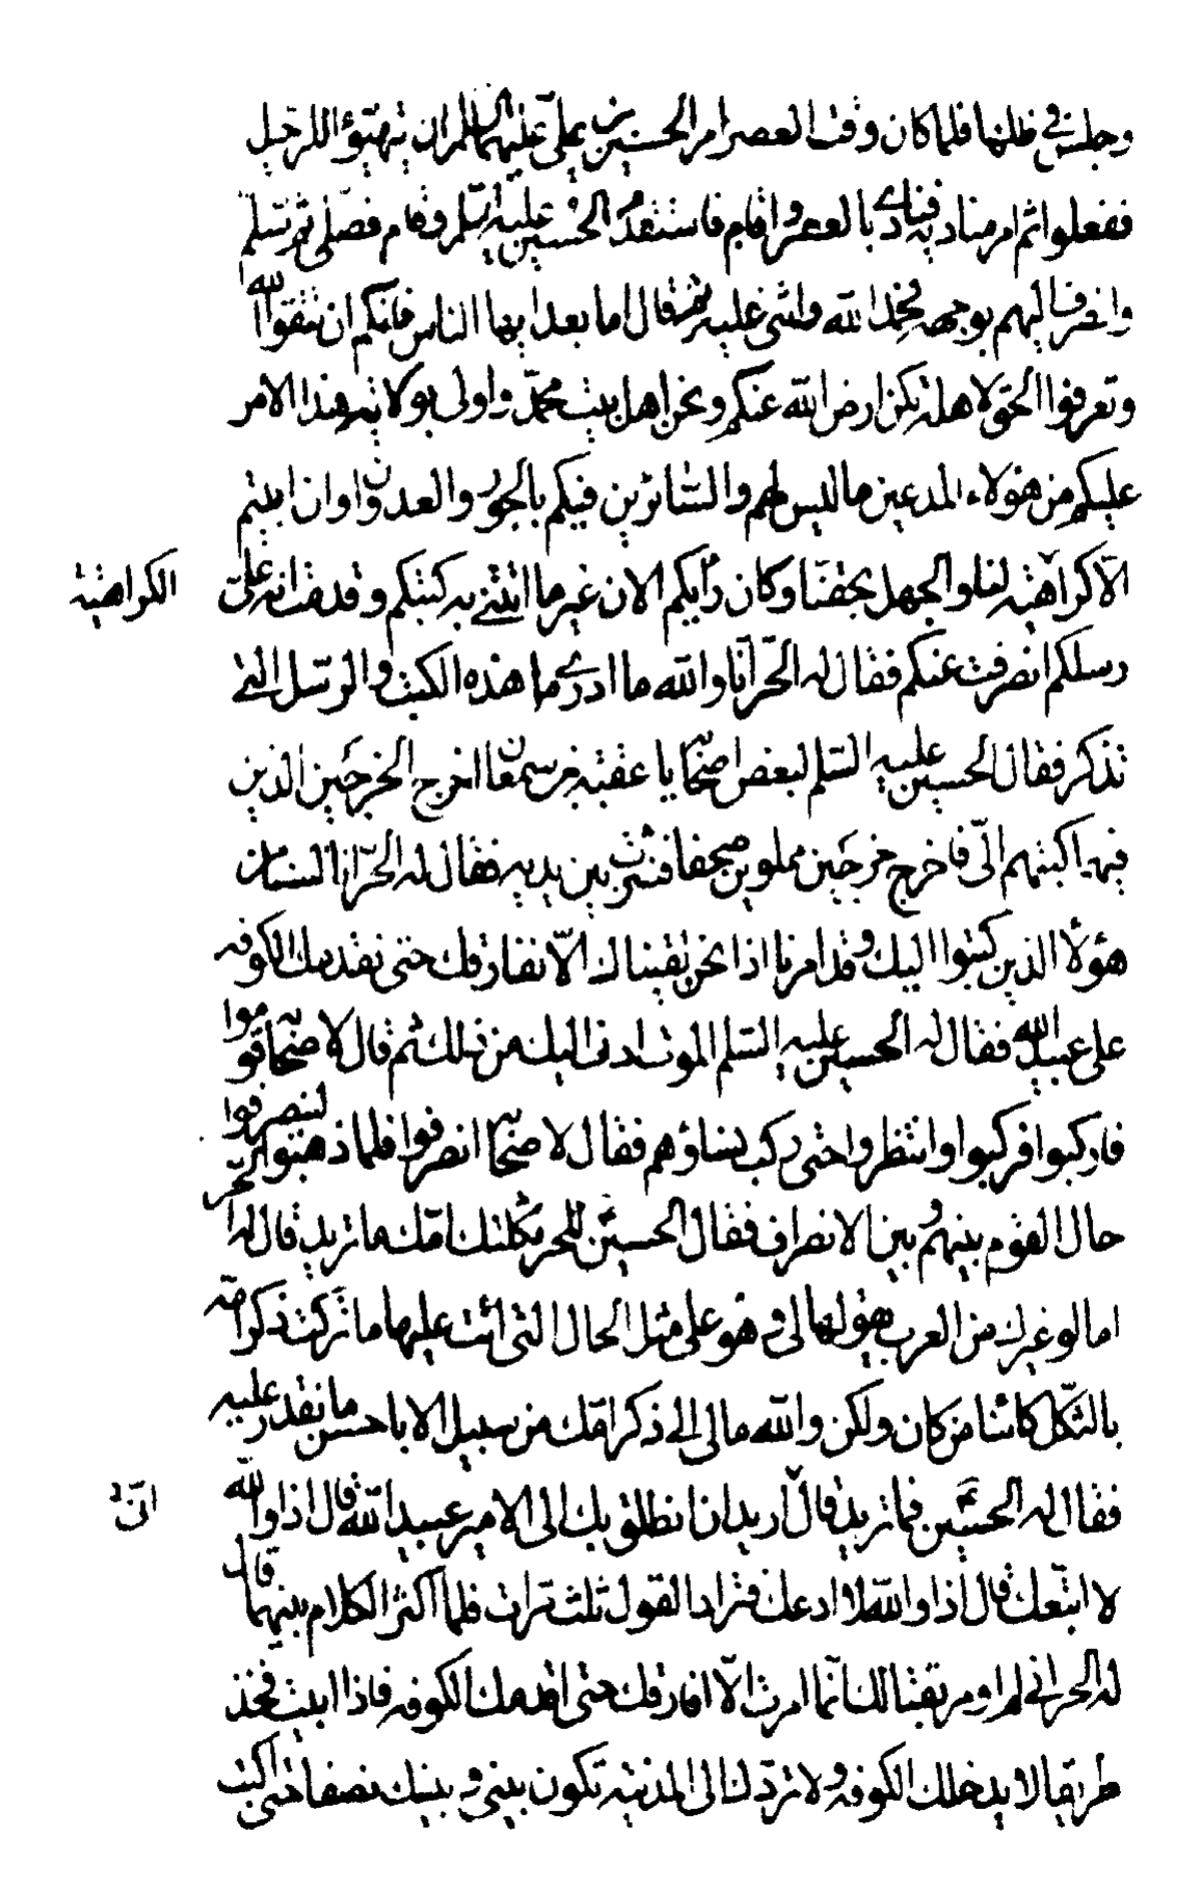 وجلس في ظلها فلما كان وقت العصر امر الحسين بن علي عليهما السلام ان يتهيؤا للرحيل
ففعلوا ثم امر مناديه فنادى بالعصر واقام فاستقدم الحسين عليه السلم وقام فصلى ثم سلم
وانصرف اليهم بوجهه فحمد الله واثنى عليه ثم قال اما بعد ايها الناس فانكم ان تتقوا الله
وتعرفوا الحق لاهله تكن ارضى لله عنكم ونحن اهل بيت محمد واولى بولاية هذا الامر
عليكم من هؤلاء المدعين ما ليس لهم والسائرين فيكم بالجور والعدوان وان ابيتم
الا كراهية لنا والجهل بحقنا وكان رأيكم الان غير ما اتتني به كتبكم وقدمت به علي
الكراهية
رسلكم انصرفت عنكم فقال له الحر انا والله ما ادري ما هذه الكتب والرسل التي
تذكر فقال الحسين عليه السلم لبعض اصحابه يا عقبة بن سمعان اخرج الخرجين الذين
فيهما كتبهم الي فاخرج خرجين مملوين صحفا فنثرت بين يديه فقال له الحر انا لسنا من
هؤلاء الذين كتبوا اليك وقد امرنا اذا نحن لقيناك الا نفارقك حتى نقدمك الكوفه
على عبيد الله فقال له الحسين عليه السلم الموت ادنى اليك من ذلك ثم قال لاصحابه قوموا
فاركبوا فركبوا وانتظروا حتى ركب نساؤهم فقال لاصحابه انصرفوا فلما ذهبوا لينصرفوا
حال القوم بينهم وبين الانصراف فقال الحسين للحر ثكلتك امك ما تريد قال له الحر
اما لو غيرك من العرب يقولها لي وهو على مثل الحال التي انت عليها ما تركت ذكر امه
بالثكل كائنا من كان ولكن والله مالي الى ذكر امك من سبيل الا باحسن ما نقدر عليه
فقال له الحسين فما تريد قال اريد ان انطلق بك الى الامير عبيد الله قال اذا والله
لا اتبعك قال اذا والله لا ادعك فترادا القول ثلث مرات فلما اكثر الكلام بينهما قال
له الحر اني لم اومر بقتالك انما امرت الا افارقك حتى اقدمك الكوفه فاذا ابيت فخذ
طريقا لا يدخلك الكوفه ولا تردك الى المدينه تكون بيني وبينك نصفا حتى اكتب